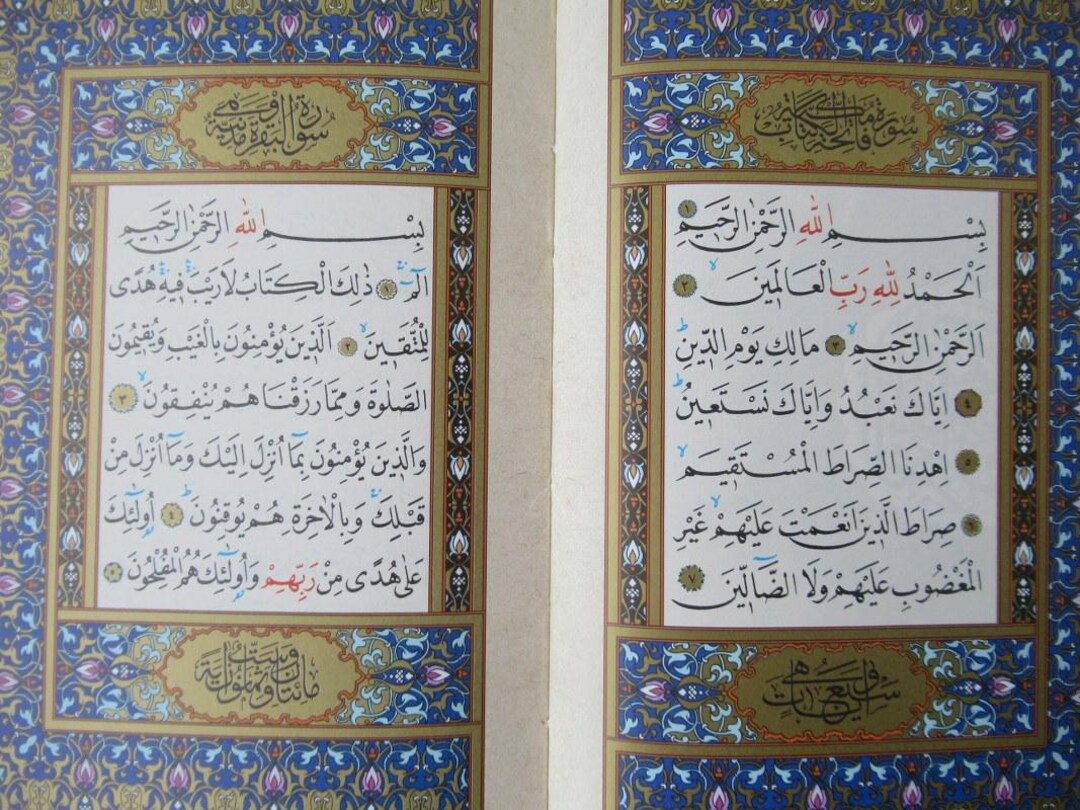 سورة فاتحة الكتاب مكية
بِسْمِ اللهِ الرَّحْمٰنِ الرَّحٖيمِ ١
اَلْحَمْدُ لِلّٰهِ رَبِّ الْعَالَمٖينَ ۙ ٢
اَلرَّحْمٰنِ الرَّحٖيمِ ۙ ٣ مَالِكِ يَوْمِ الدّٖينِ ؕ
٤ اِيَّاكَ نَعْبُدُ وَاِيَّاكَ نَسْتَعٖينُ ؕ
٥ اِهْدِنَا الصِّرَاطَ الْمُسْتَقٖيمَ ۙ
٦ صِرَاطَ الَّذٖينَ اَنْعَمْتَ عَلَيْهِمْ ۙ غَيْرِ
الْمَغْضُوبِ عَلَيْهِمْ وَلَا الضَّٓالّٖينَ ٧
وهي سبع آيات
سورة البقرة مدنية وهي
بِسْمِ اللهِ الرَّحْمٰنِ الرَّحٖيمِ
الٓمٓ ۚ ١ ذٰلِكَ الْكِتَابُ لَا رَيْبَ ۚۛ فٖيهِ ۚۛ هُدًى
لِلْمُتَّقٖينَ ۙ ٢ اَلَّذٖينَ يُؤْمِنُونَ بِالْغَيْبِ وَيُقٖيمُونَ
الصَّلٰوةَ وَمِمَّا رَزَقْنَاهُمْ يُنْفِقُونَ ۙ ٣
وَالَّذٖينَ يُؤْمِنُونَ بِمَٓا اُنْزِلَ اِلَيْكَ وَمَٓا اُنْزِلَ مِنْ
قَبْلِكَ ۚ وَبِالْاٰخِرَةِ هُمْ يُوقِنُونَ ؕ ٤ اُولٰٓئِكَ
عَلٰى هُدًى مِنْ رَبِّهِمْ وَاُولٰٓئِكَ هُمُ الْمُفْلِحُونَ ٥
مائتان وست وثمانون آية